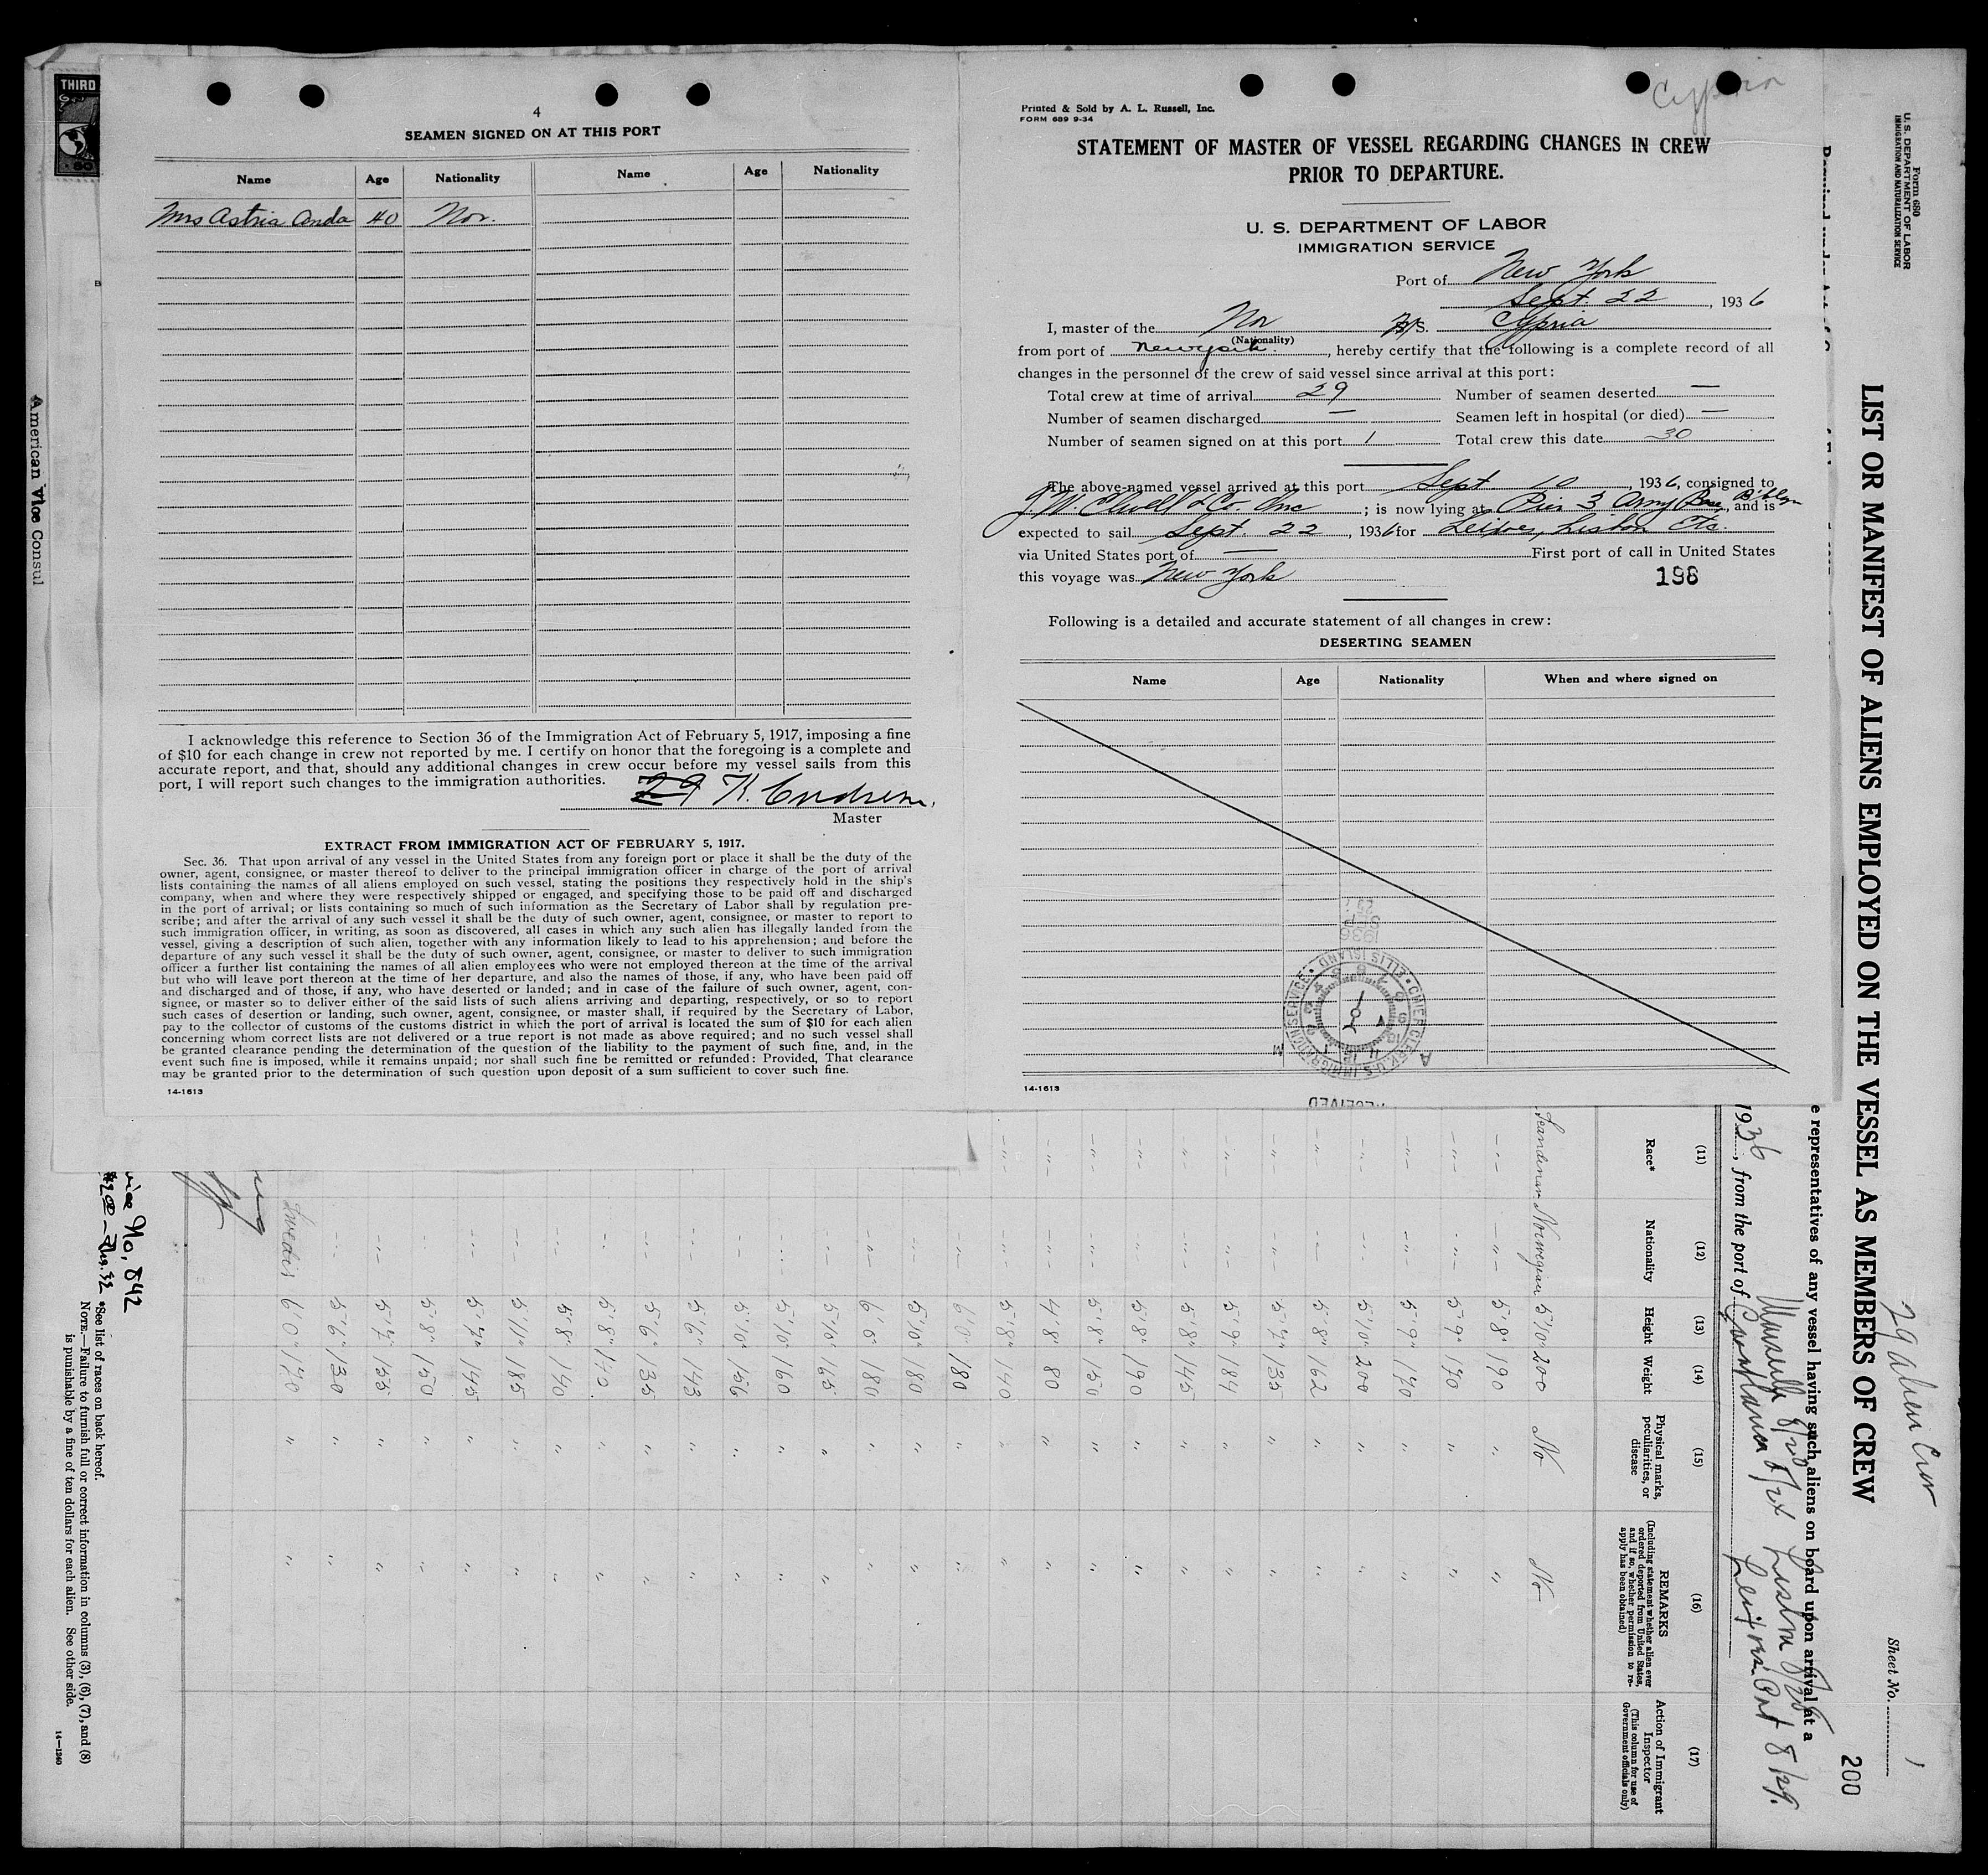 4
SEAMEN SIGNED ON AT THIS PORT
Name Age Nationality Name Age Nationality
Mrs Astria Anda 40 Nor.
I acknowledge this reference to Section 36 of the Immigration Act of February 5, 1917, imposing a fine
of $10 for each change in crew not reported by me. I certify on honor that the foregoing is a complete and
accurate report, and that, should any additional changes in crew occur before my vessel sails from this
port, I will report such changes to the immigration authorities.
Master
EXTRACT FROM IMMIGRATION ACT OF FEBRUARY 5, 1917.
Sec. 36. That upon arrival of any vessel in the United States from any foreign port or place it shall be the duty of the
owner, agent, consignee, or master thereof to deliver to the principal immigration officer in charge of the port of arrival
lists containing the names of all aliens employed on such vessel, stating the positions they respectively hold in the ship's
company, when and where they were respectively shipped or engaged, and specifying those to be paid off and discharged
in the port of arrival; or lists containing so much of such information as the Secretary of Labor shall by regulation pre-
scribe; and after the arrival of any such vessel it shall be the duty of such owner, agent, consignee, or master to report to
such immigration officer, in writing, as soon as discovered, all cases in which any such alien has illegally landed from the
vessel, giving a description of such alien, together with any information likely to lead to his apprehension; and before the
departure of any such vessel it shall be the duty of such owner, agent, consignee, or master to deliver to such immigration
officer a further list containing the names of all alien employees who were not employed thereon at the time of the arrival
but who will leave port thereon at the time of her departure, and also the names of those, if any, who have been paid off
and discharged and of those, if any, who have deserted or landed; and in case of the failure of such owner, agent, con-
signee, or master so to deliver either of the said lists of such aliens arriving and departing, respectively, or so to report
such cases of desertion or landing, such owner, agent, consignee, or master shall, if required by the Secretary of Labor,
pay to the collector of customs of the customs district in which the port of arrival is located the sum of $10 for each alien
concerning whom correct lists are not delivered or a true report is not made as above required; and no such vessel shall
be granted clearance pending the determination of the question of the liability to the payment of such fine, and, in the
event such fine is imposed, while it remains unpaid; nor shall such fine be remitted or refunded: Provided, That clearance
may be granted prior to the determination of such question upon deposit of a sum sufficient to cover such fine.
14-1613
Cypria
Printed & Sold by A. L. Russell, Inc.
FORM 689 9-34
STATEMENT OF MASTER OF VESSEL REGARDING CHANGES IN CREW
PRIOR TO DEPARTURE.
U. S. DEPARTMENT OF LABOR
IMMIGRATION SERVICE
Port of New York
Sept. 22, 1936
I, master of the Nor M/S. Cypria
(Nationality)
from port of New york, hereby certify that the following is a complete record of all
changes in the personnel of the crew of said vessel since arrival at this port:
Total crew at time of arrival 29 Number of seamen deserted —
Number of seamen discharged — Seamen left in hospital (or died) —
Number of seamen signed on at this port 1 Total crew this date 30
The above-named vessel arrived at this port Sept. 10, 1936, consigned to
J. W. Elwell & Co. Inc; is now lying at Pier 3 Army Base, B'klyn, and is
expected to sail Sept. 22, 1936 for Leixoes, Lisbon Etc.
via United States port of — First port of call in United States
this voyage was New York
198
Following is a detailed and accurate statement of all changes in crew:
DESERTING SEAMEN
Name Age Nationality When and where signed on
1936
SEP
CHIEF CLERK U.S. IMMIGRATION SERVICE
ELLIS ISLAND
RECEIVED
14-1613
THIRD
American Vice Consul
Form 680
U. S. DEPARTMENT OF LABOR
IMMIGRATION AND NATURALIZATION SERVICE
29 alien Crew
Sheet No. 1
LIST OR MANIFEST OF ALIENS EMPLOYED ON THE VESSEL AS MEMBERS OF CREW
200
e representatives of any vessel having such aliens on board upon arrival at a
Marseille 8/20 Lisbon 8/28
1936, from the port of
8/29
(11) (12) (13) (14) (15) (16) (17)
Race* Nationality Height Weight
Physical marks, peculiarities, or disease
REMARKS
(Including statement whether alien ever ordered deported from United States, and if so, whether permission to re-apply has been obtained)
Action of Immigrant Inspector
(This column for use of Government officials only)
Scandinav Norwegian 5'10" 200 No No
-"- -"- 5'8" 190 " "
-"- -"- 5'9" 170 " "
-"- -"- 5'9" 170 " "
-"- -"- 5'10" 200 " "
-"- -"- 5'8" 162 " "
-"- -"- 5'7" 135 " "
-"- -"- 5'9" 184 " "
-"- -"- 5'8" 145 " "
-"- -"- 5'8" 190 " "
-"- -"- 5'8" 150 " "
-"- -"- 4'8" 80 " "
-"- -"- 5'8" 140 " "
-"- 6'0" 180 " "
-"- 5'10" 180 " "
-"- 6'0" 180 " "
-"- 5'10" 165 " "
-"- 5'10" 160 " "
-"- 5'10" 156 " "
-"- 5'6" 143 " "
-"- 5'6" 135 " "
-"- 5'8" 170 " "
-"- 5'8" 140 " "
-"- 5'11" 185 " "
-"- 5'7" 145 " "
-"- 5'8" 150 " "
-"- 5'7" 155 " "
-"- 5'6" 130 " "
Swedis 6'0" 170 " "
vice No. 842
*See list of races on back hereof.
NOTE.—Failure to furnish full or correct information in columns (3), (6), (7), and (8)
is punishable by a fine of ten dollars for each alien. See other side.
14—1240